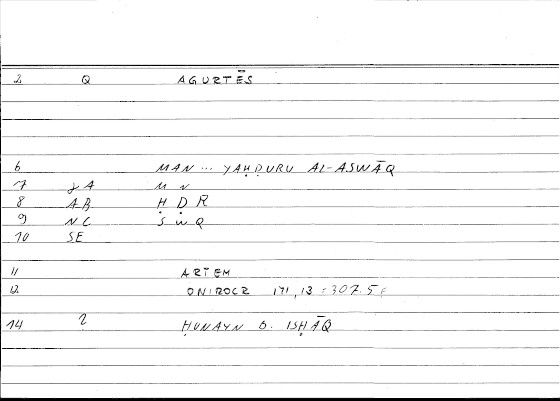 2 Q AGURTĒS
6 MAN ... YAḤḌURU AL-ASWĀQ
7 gA MN
8 AB ḤḌR
9 NC SWQ
10 SE
11 ARTEM
12 ONIROCR 171,13 = 307.5f
14 2 ḤUNAYN B. ISḤĀQ